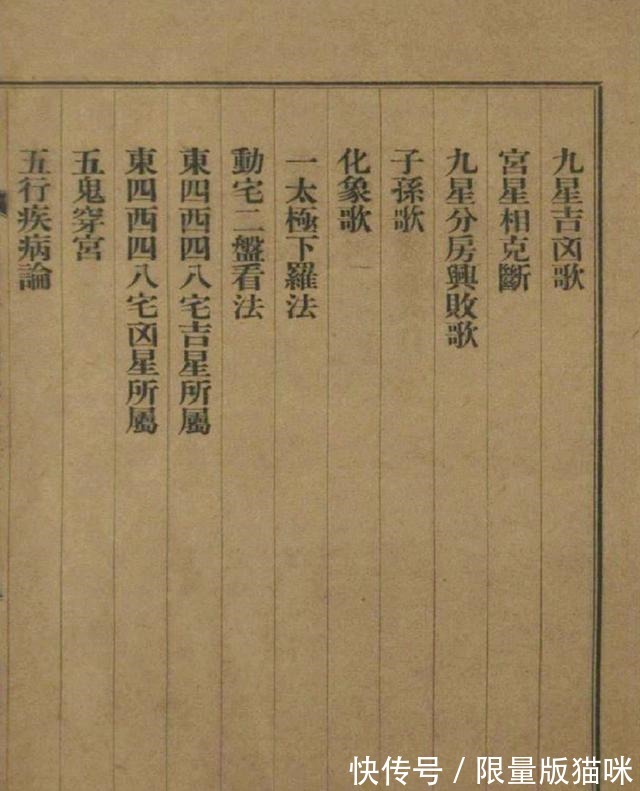 九星吉凶歌
宮星相克斷
九星分房興敗歌
子孫歌
化象歌
一太極下羅法
動宅二盤看法
東四西四八宅吉星所屬
東四西四八宅凶星所屬
五鬼穿宮
五行疾病論
快传号/限量版猫咪